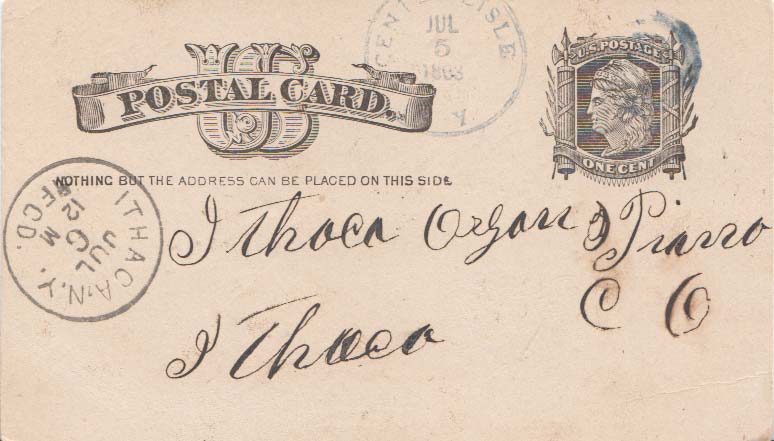 US
POSTAL CARD.
CENT LISLE
JUL
5
1883
Y
U.S. POSTAGE
ONE CENT
NOTHING BUT THE ADDRESS CAN BE PLACED ON THIS SIDE
ITHACA, N.Y.
JUL
6
12 M
REC'D.
Ithaca Organ & Piano
CO
Ithaca